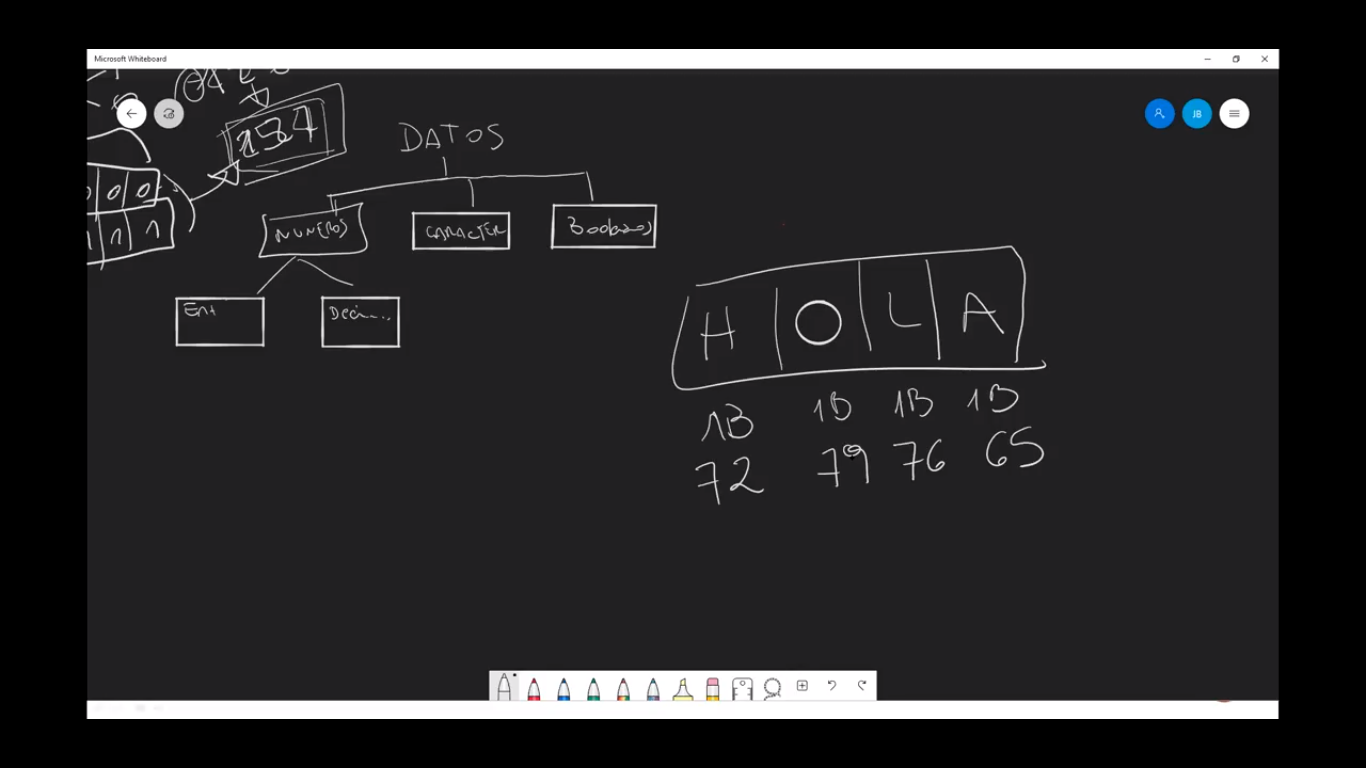 Microsoft Whiteboard
JB
DATOS
0 0
1 1
NUMEROS CARACTER Booleanos
Ent Deci...
H O L A
1B 1B 1B 1B
72 79 76 65